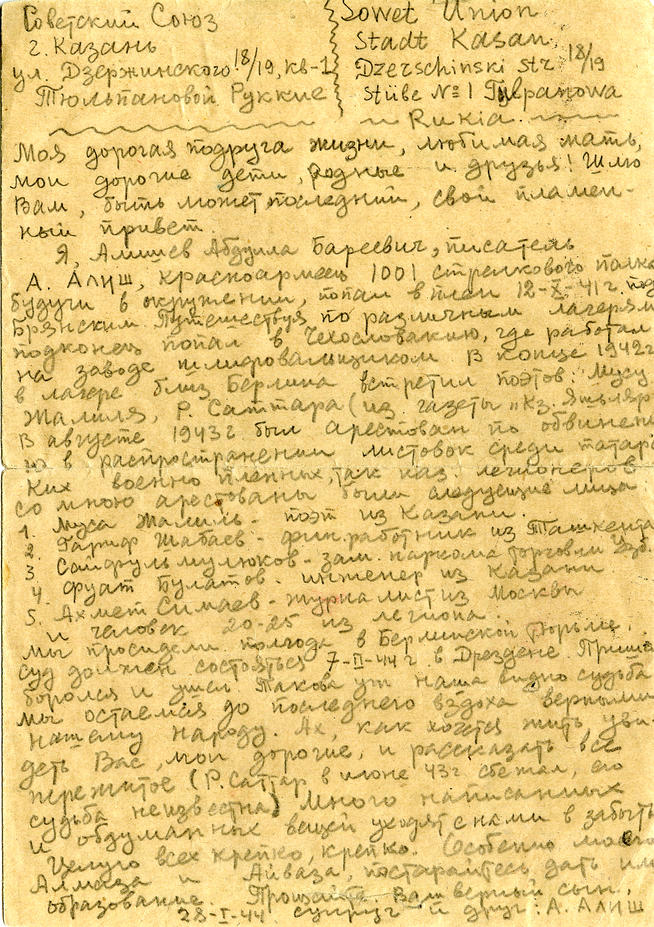 Советский Союз
г. Казань
ул. Дзержинского 18/19, кв-1
Тюльпановой Руккие
Sowet Union
Stadt Kasan
Dzerschinski Str 18/19
Stübe № 1 Tülpanowa
Rukia.
Моя дорогая подруга жизни, любимая мать,
мои дорогие дети, родные и друзья! Шлю
Вам, быть может последний, свой пламен-
ный привет.
Я, Алишев Абдула Бареевич, писатель
А. Алиш, красноармеец 1001 стрелкового полка
будучи в окружении, попал в плен 12-X-41 г. под
Брянским. Путешествуя по различным лагерям
подконец попал в Чехословакию, где работал
на заводе шлифовальщиком В конце 1942 г
в лагере близ Берлина встретил поэтов: Мусу
Жалиля, Р. Саттара (из газеты „Кз. Яшьляр
В августе 1943 г был арестован по обвинени
ю в распространении листовок среди татарс
ких военно пленных, так наз. легионеров
со мною арестованы были следующие лица:
1. Муса Жалиль - поэт из Казани.
2. Гариф Шабаев - фин. работник из Ташкента
3. Сайфульмулюков - зам. наркома торговли Узб.
4. Фуат Булатов. инженер из Казани
5. Ахмет Симаев - журналист из Москвы
и человек 20-25 из легиона.
мы просидели полгода в Берлинской тюрьме.
суд должен состояться 7-II-44 г в Дрездене
боролся и ушел. Такова уж наша видно судьба
мы остаемся до последнего вздоха верными
нашему народу. Ах, как хочется жить уви-
деть Вас, мои дорогие, и рассказать все
пережитое (Р. Саттар в июне 43 г сбежал, его
судьба неизвестна) Много написанных
и обдуманных вещей уходят с нами в забыть
Целую всех крепко, крепко. Особенно моего
Алмаза и Айваза, постарайтесь дать им
образование. Прощайте. Ваш верный сын,
28-I-44. супруг и друг: А. Алиш